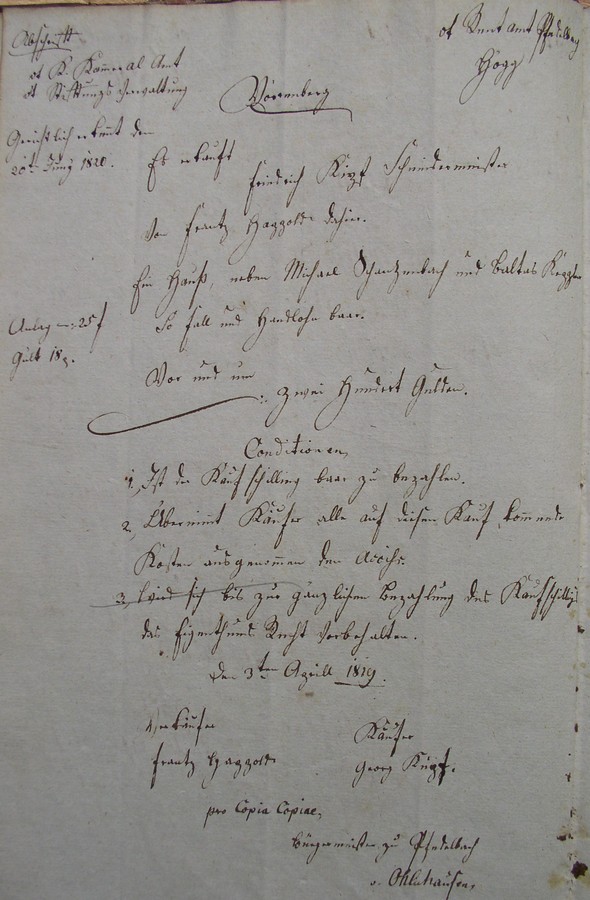 Abschrift
ot Rent amt Pfedelbach
ot K. Kameral Amt
ot Stiftungs Verwaltung
Högg
Gerichtlich erkennt den
20ten Juny 1820.
Es erkauft
Friedrich Schneidermeister
Von Frantz Haggold dahier.
Ein Hauß, neben Michael Schantzenbach und Baltas
So fall und Handlohn baar.
Anlag 25 f
Gült 18
Vor und um
Zwei Hundert Gulden.
Conditionen
1. Ist der Kaufschilling baar zu bezahlen.
2. Übernimt Käufer alle auf diesen Kauf kommende
Kosten ausgenommen den Accis.
3. wird sich bis zur gänzlichen Bezahlung des Kaufschillings
das Eigenthums Recht vorbehalten.
Den 3ten Aprill 1819.
Verkäufer
Käufer
Frantz Haggold
Georg
pro Copia Copiae,
Bürgermeister zu Pfedelbach
v. Olnhausen,